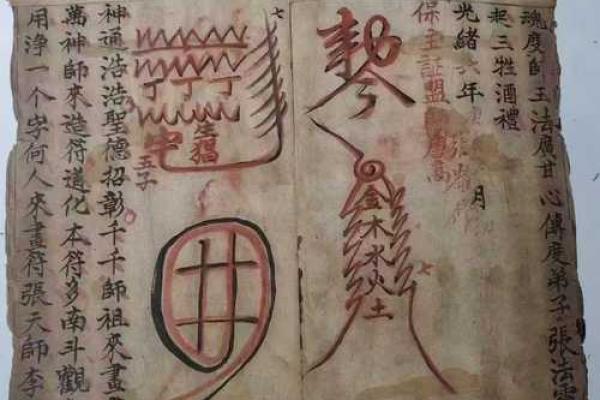 魂度師王法廣甘心傳度弟子張法
三牲酒禮
光緒年
月
保主証盟
勅令
金木水火土
七
七
丁丁丁
生猖
五子
井
神通浩浩聖德招彰千千師祖來畫
萬神師來造符道化本符多南斗觀
用淨一个字何人來畫符張天師李